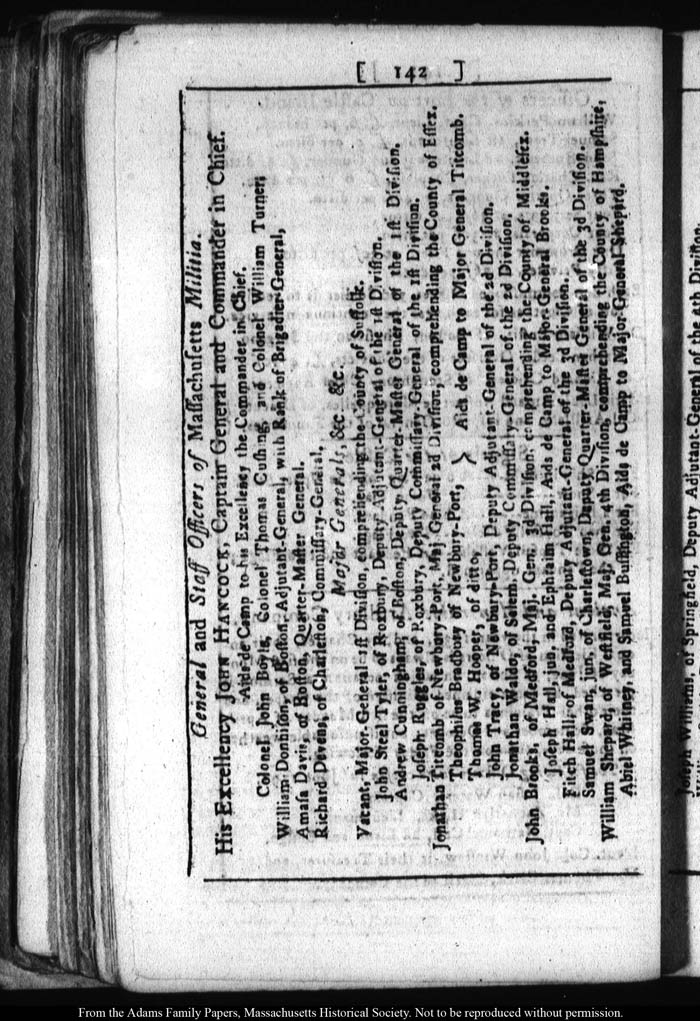 [ 142 ]
General and Staff Officers of Maſſachuſetts Militia.
His Excellency JOHN HANCOCK, Captain General and Commander in Chief.
Aids de Camp to his Excellency the Commander in Chief.
Colonel John Boyle, Colonel Thomas Cuſhing, and Colonel William Turner;
William Donniſon, of Boſton, Adjutant-General, with Rank of Brigadier-General,
Amaſa Davis, of Boſton, Quarter-Maſter General.
Richard Devens, of Charleſton, Commiſſary-General,
Major Generals, &c. &c.
Vacant, Major-General 1ſt Diviſion, comprehending the County of Suffolk.
John Steel Tyler, of Roxbury, Deputy Adjutant-General of the 1ſt Diviſion.
Andrew Cunningham, of Boſton, Deputy Quarter-Maſter General of the 1ſt Diviſion.
Joſeph Ruggles, of Roxbury, Deputy Commiſſary-General of the 1ſt Diviſion.
Jonathan Titcomb of Newbury-Port, Maj General 2d Diviſion, comprehending the County of Eſſex.
Theophilus Bradbury of Newbury-Port, } Aids de Camp to Major General Titcomb.
Thomas W. Hooper, of ditto,
John Tracy, of Newbury-Port, Deputy Adjutant-General of the 2d Diviſion.
Jonathan Waldo, of Salem, Deputy Commiſſary-General of the 2d Diviſion.
John Brooks, of Medford, Maj. Gen. 3d Diviſion, comprehending the County of Middleſex.
Joſeph Hall, jun. and Ephraim Hall, Aids de Camp to Major-General Brooks.
Fitch Hall, of Medford, Deputy Adjutant-General of the 3d Diviſion.
Samuel Swan, jun. of Charleſtown, Deputy Quarter-Maſter General of the 3d Diviſion.
William Shepard, of Weſtfield, Maj. Gen. 4th Diviſion, comprehending the County of Hampſhire,
Abiel Whitney, and Samuel Buffington, Aids de Camp to Major-General Shepard.
Joſeph Williams, of Springfield, Deputy Adjutant General of the 4th Diviſion.
From the Adams Family Papers, Massachusetts Historical Society. Not to be reproduced without permission.